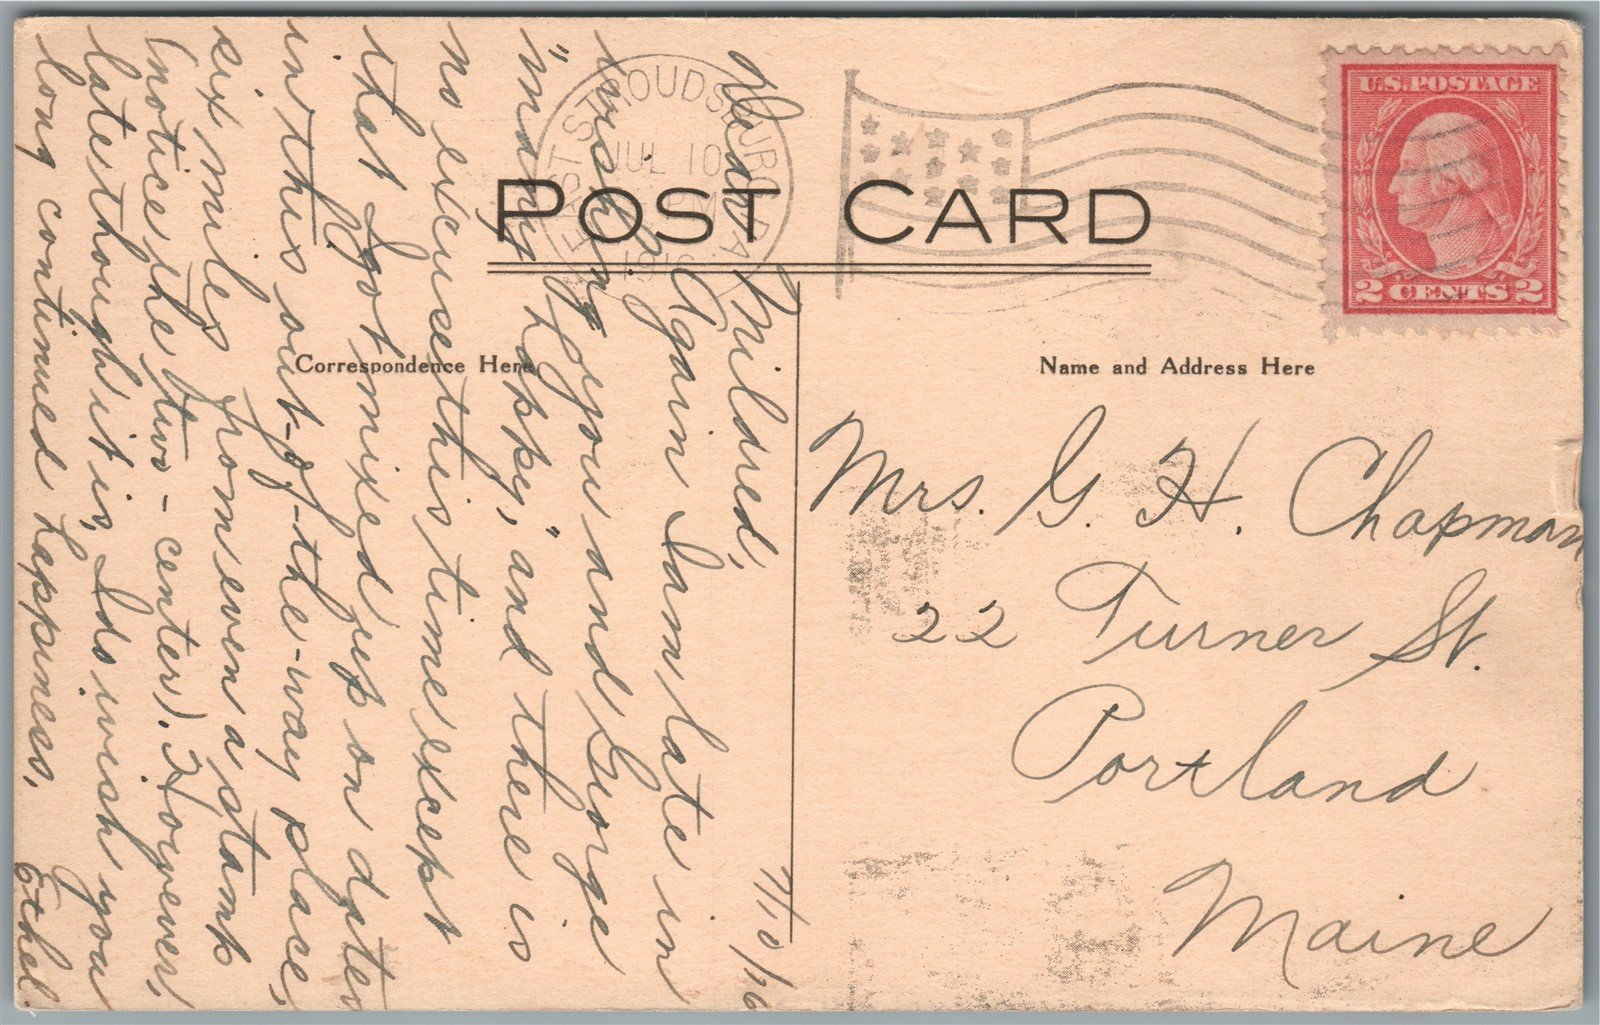 POST CARD
Correspondence Here
Name and Address Here
U.S. POSTAGE
2 CENTS 2
EAST STROUDSBURG PA.
JUL 10
PM
1916
Mrs. G. H. Chapman
22 Turner St.
Portland
Maine
7/10/16
Dear Mildred,
Again I am late in
wishing you and George
"many happy," and there is
no excuse this time except
that I got mixed up on dates
in this out-of-the-way place,
six miles from even a stamp
(notice the two-center). However,
late though it is, I do wish you
long continued happiness.
Ethel.